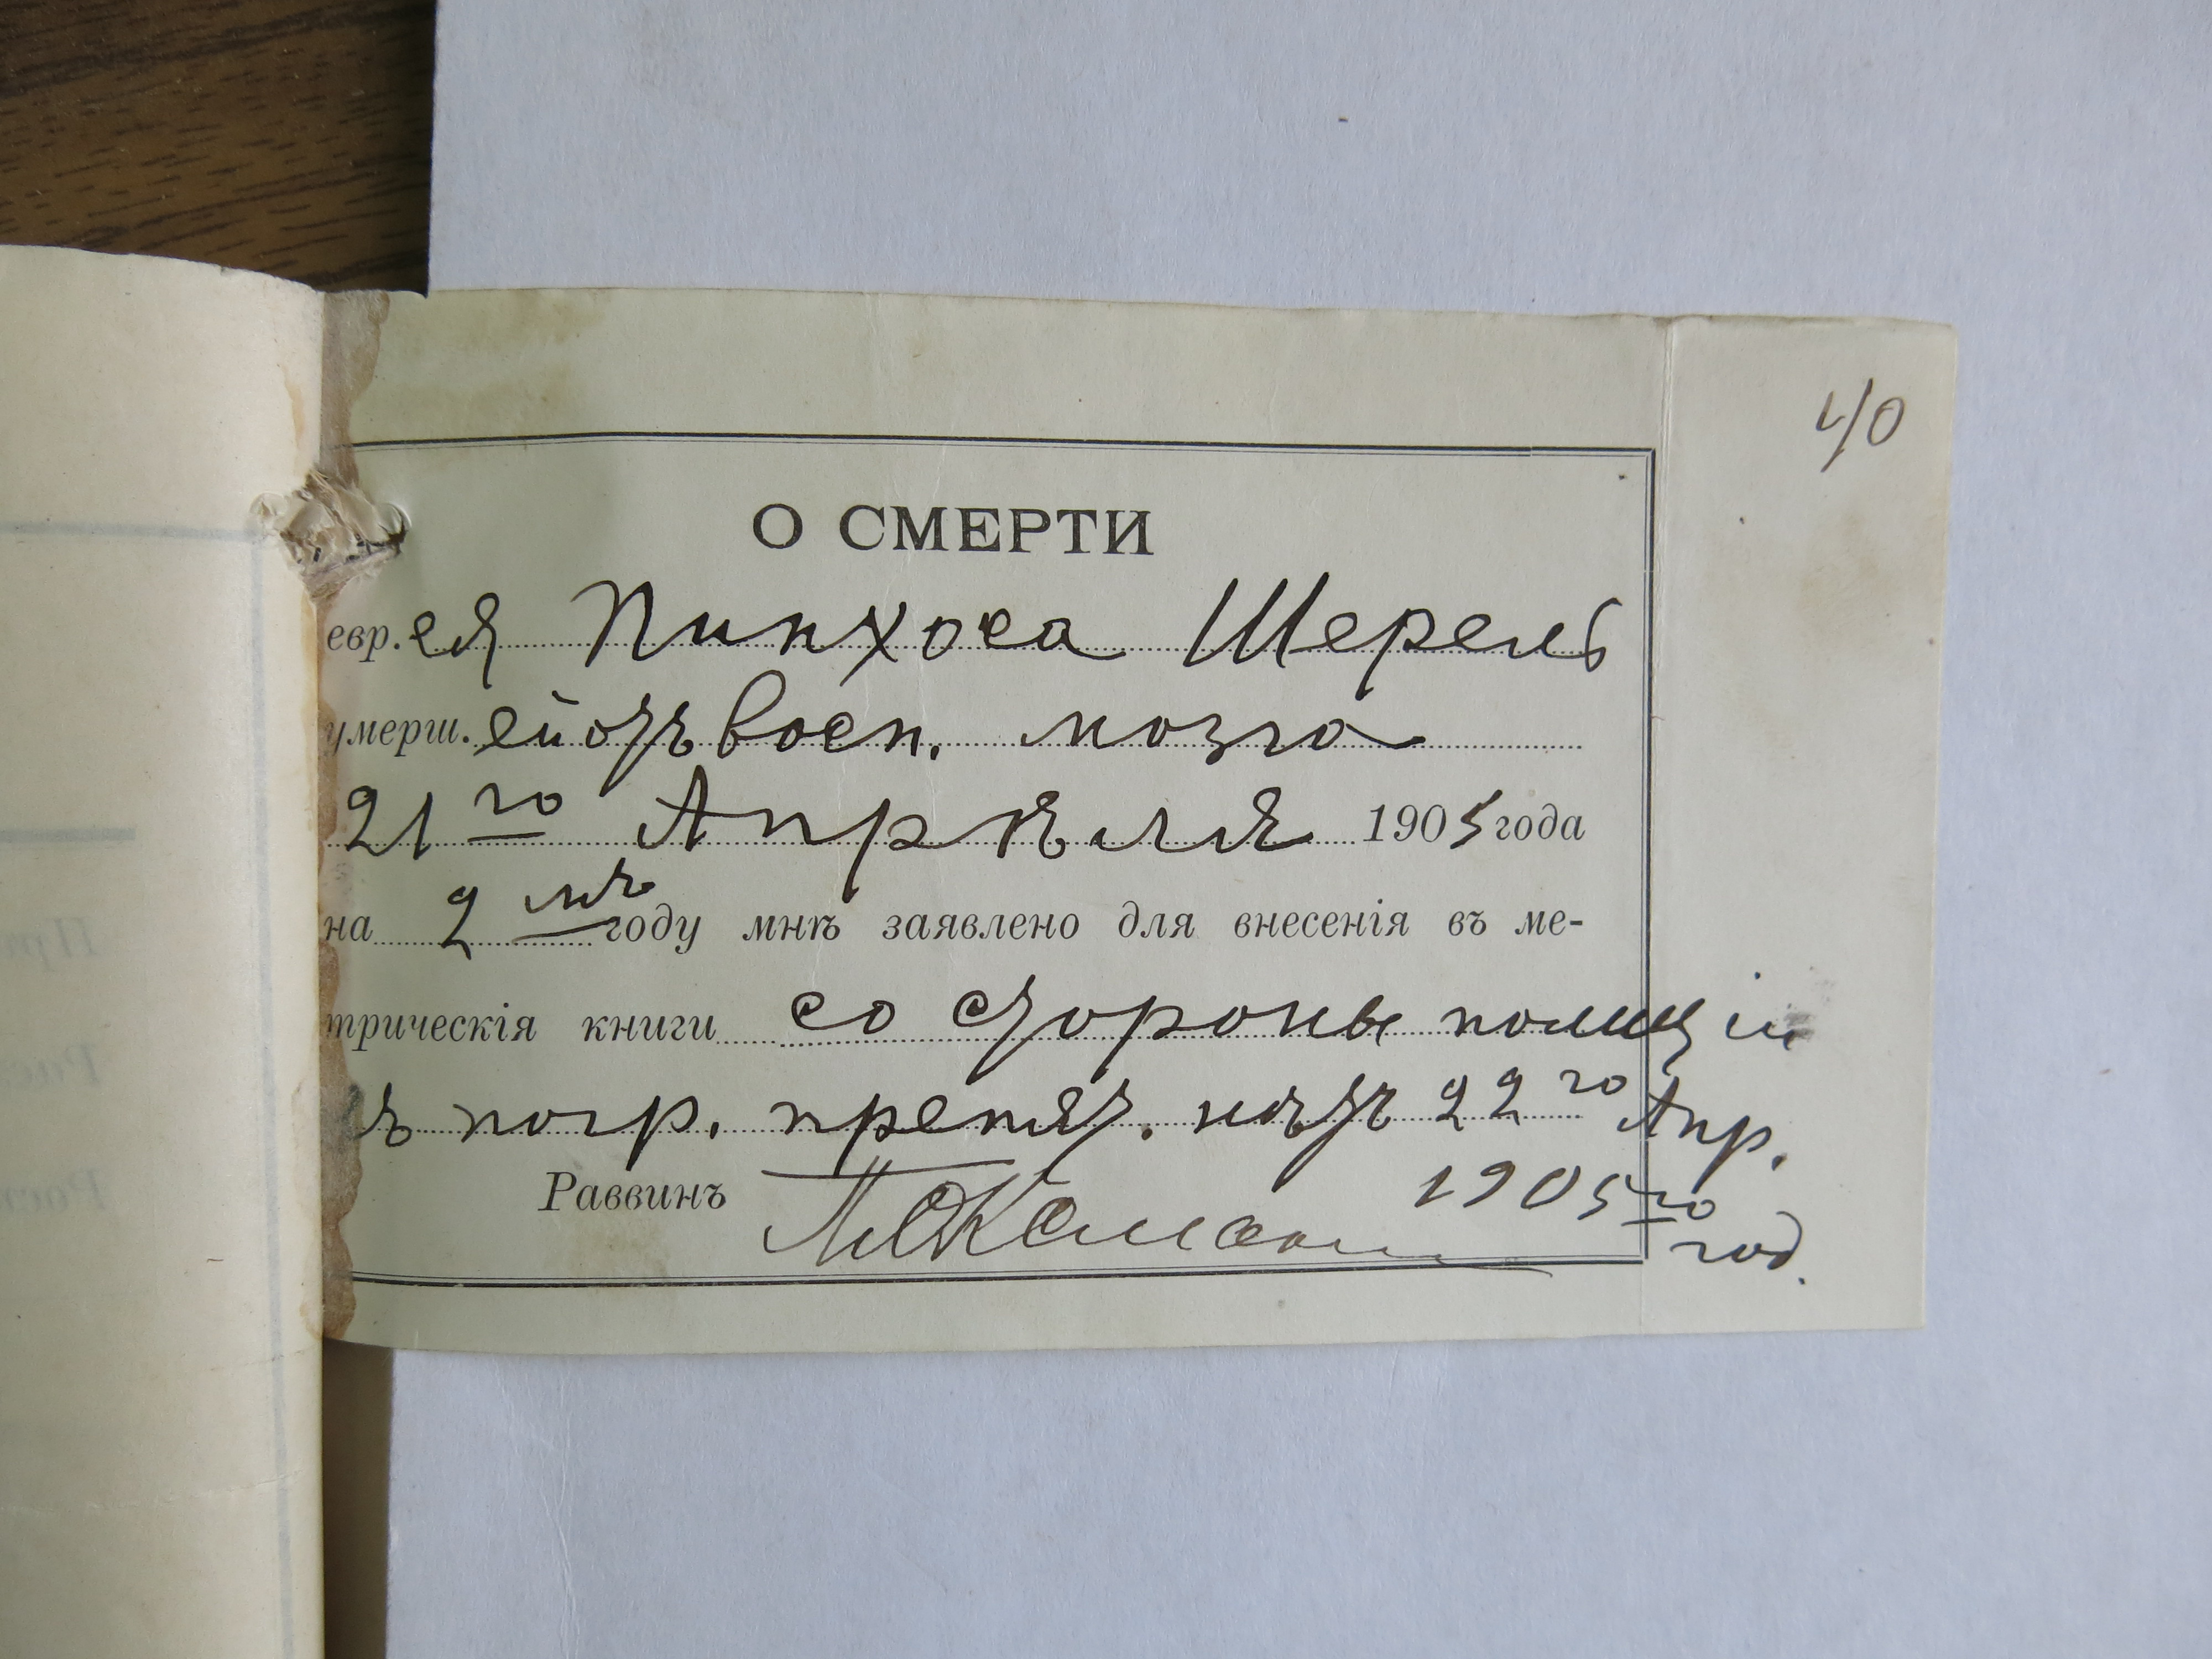 40
О СМЕРТИ
евр.ея Пинхоса Шерель
умерш.ей отъ восп. мозга
21го Апрѣля 1905 года
на 2 мъ году мнѣ заявлено для внесенія въ ме-
трическія книги со стороны полиціи
къ погр. препят. нѣтъ 22го Апр.
Раввинъ 1905го
год.